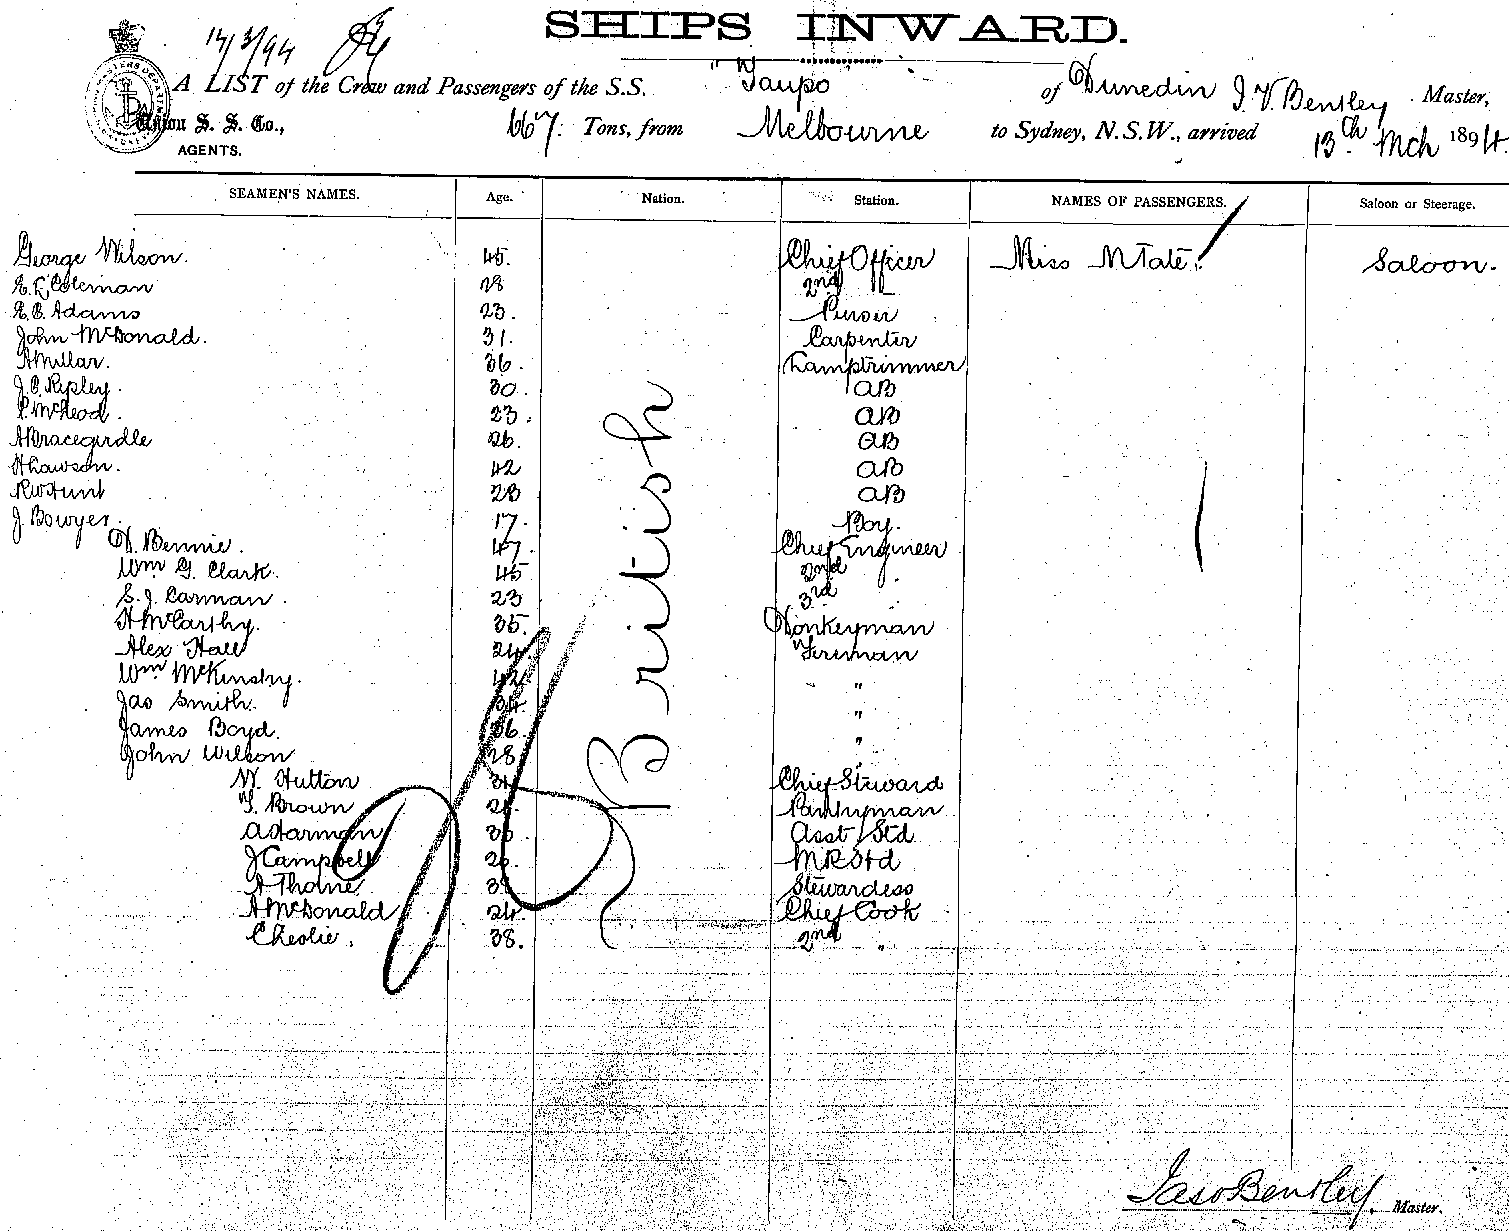 SHIPS INWARD.
14/3/94
A LIST of the Crew and Passengers of the S.S. "Taupo" of Dunedin J. V. Bensley Master,
Union S. S. Co., 667. Tons, from Melbourne to Sydney, N.S.W., arrived 13th Mch 1894.
AGENTS.
SEAMEN'S NAMES. Age. Nation. Station. NAMES OF PASSENGERS. Saloon or Steerage.
George Wilson. 45. Chief Officer Miss M Tate. Saloon.
Coleman 28 2nd "
E. E. Adams 23. Purser
John McDonald. 31. Carpenter
A Millar. 36. Lamptrimmer
J. C. Ripley. 30. AB
McLeod. 23. AB
A Bracegirdle 26. AB
H Lawson. 42 AB
R W Hunt 28 AB
J Bowyer. 17. Boy.
D. Bennie. 47. Chief Engineer
Wm G. Clark. 45 2nd "
S. J. Carman. 23 3rd
H McCarthy. 35. Donkeyman
Alex Hall 24. Fireman
Wm McKinstry. 42 "
Jas Smith. 34. "
James Boyd. 36 "
John Wilson 28. "
W. Hutton Chief Steward
T. Brown Pantryman
A Harman Asst Std
J Campbell 26. M R Std
A Thorne Stewardess
A McDonald 24. Chief Cook
38. 2nd "
British
Jas Bensley. Master.